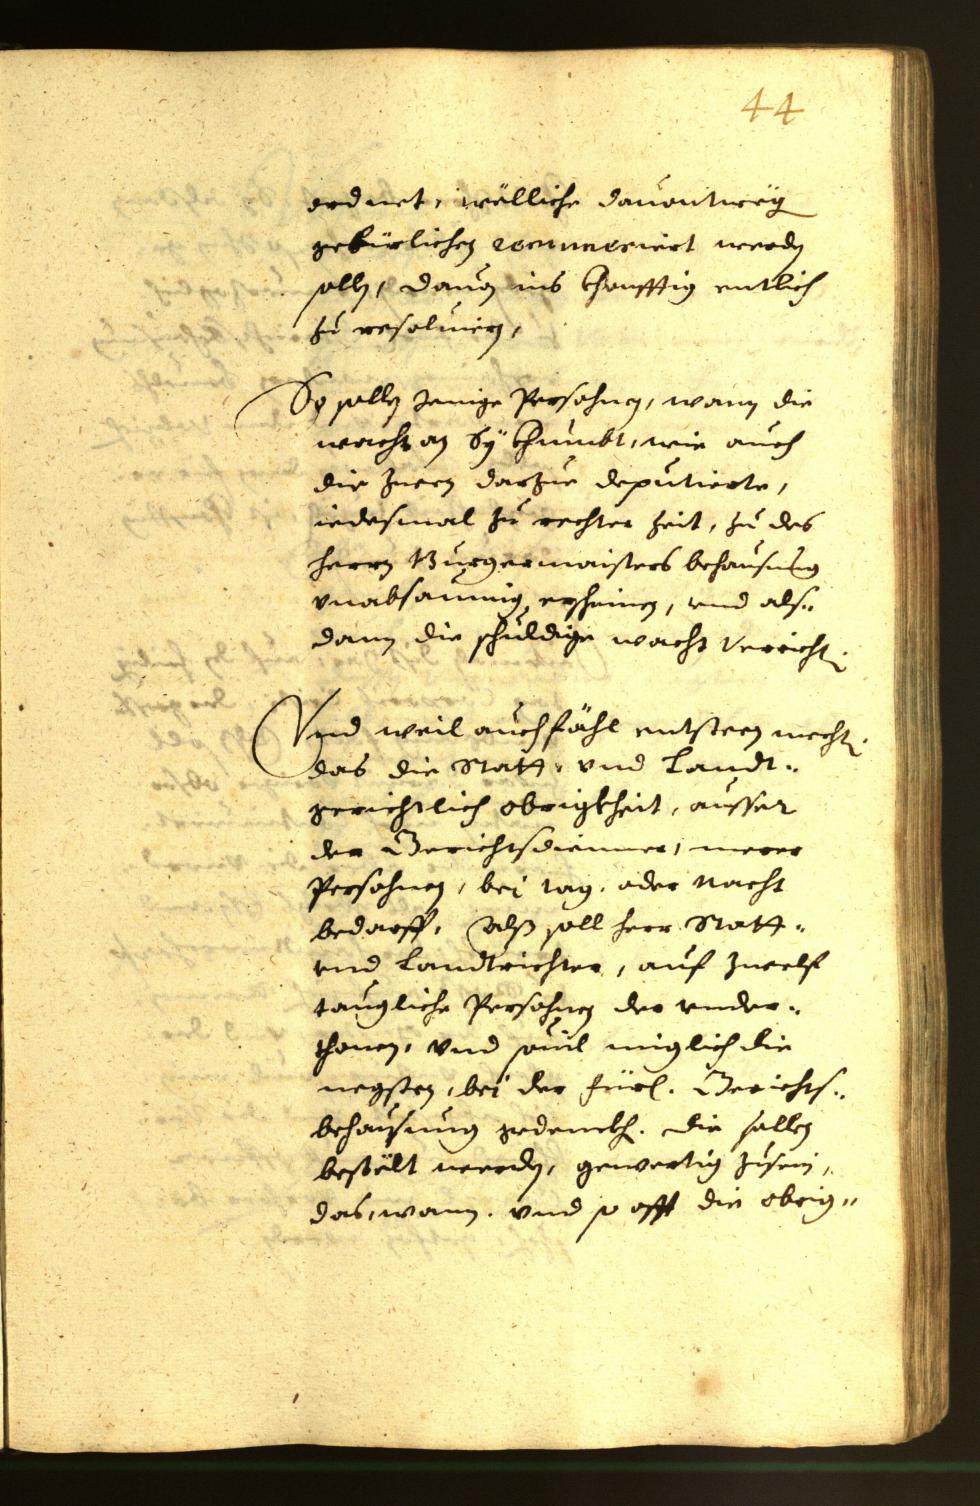 44
ordnet, wölliche dauontweg
gebürlichen remuneriert werdn
solln, dauon ins khonfftig entlich
zu resoluiern,
So solln Jenige Persohnen, wann die
wacht an Sÿ khumbt, wie auch
die Jnen darzue deputierte,
iedesmal zu rechter zeit, zu des
herrn Burgermaisters behausung
vnabsaumig erscheinen, vnd als„
dann die schuldige wacht verricht.
Vnd weil auch fähl entsteen mecht.
das die Statt- vnd Landt„
gerichtlich obrigkheit, ausser
der Gerichtsdienner, merer
Persohnen, bei tag, oder nacht
bedarff, Alß soll herr Statt„
vnd Landtrichter, auf zwelf
taugliche Persohnen der vnder„
thonen, vnd souil miglich die
negsten, bei der fürl. Gerichts„
behausung gedenckh. die sollen
bestölt werden, gewertig zusein,
das, wann, vnd so offt die obrig„